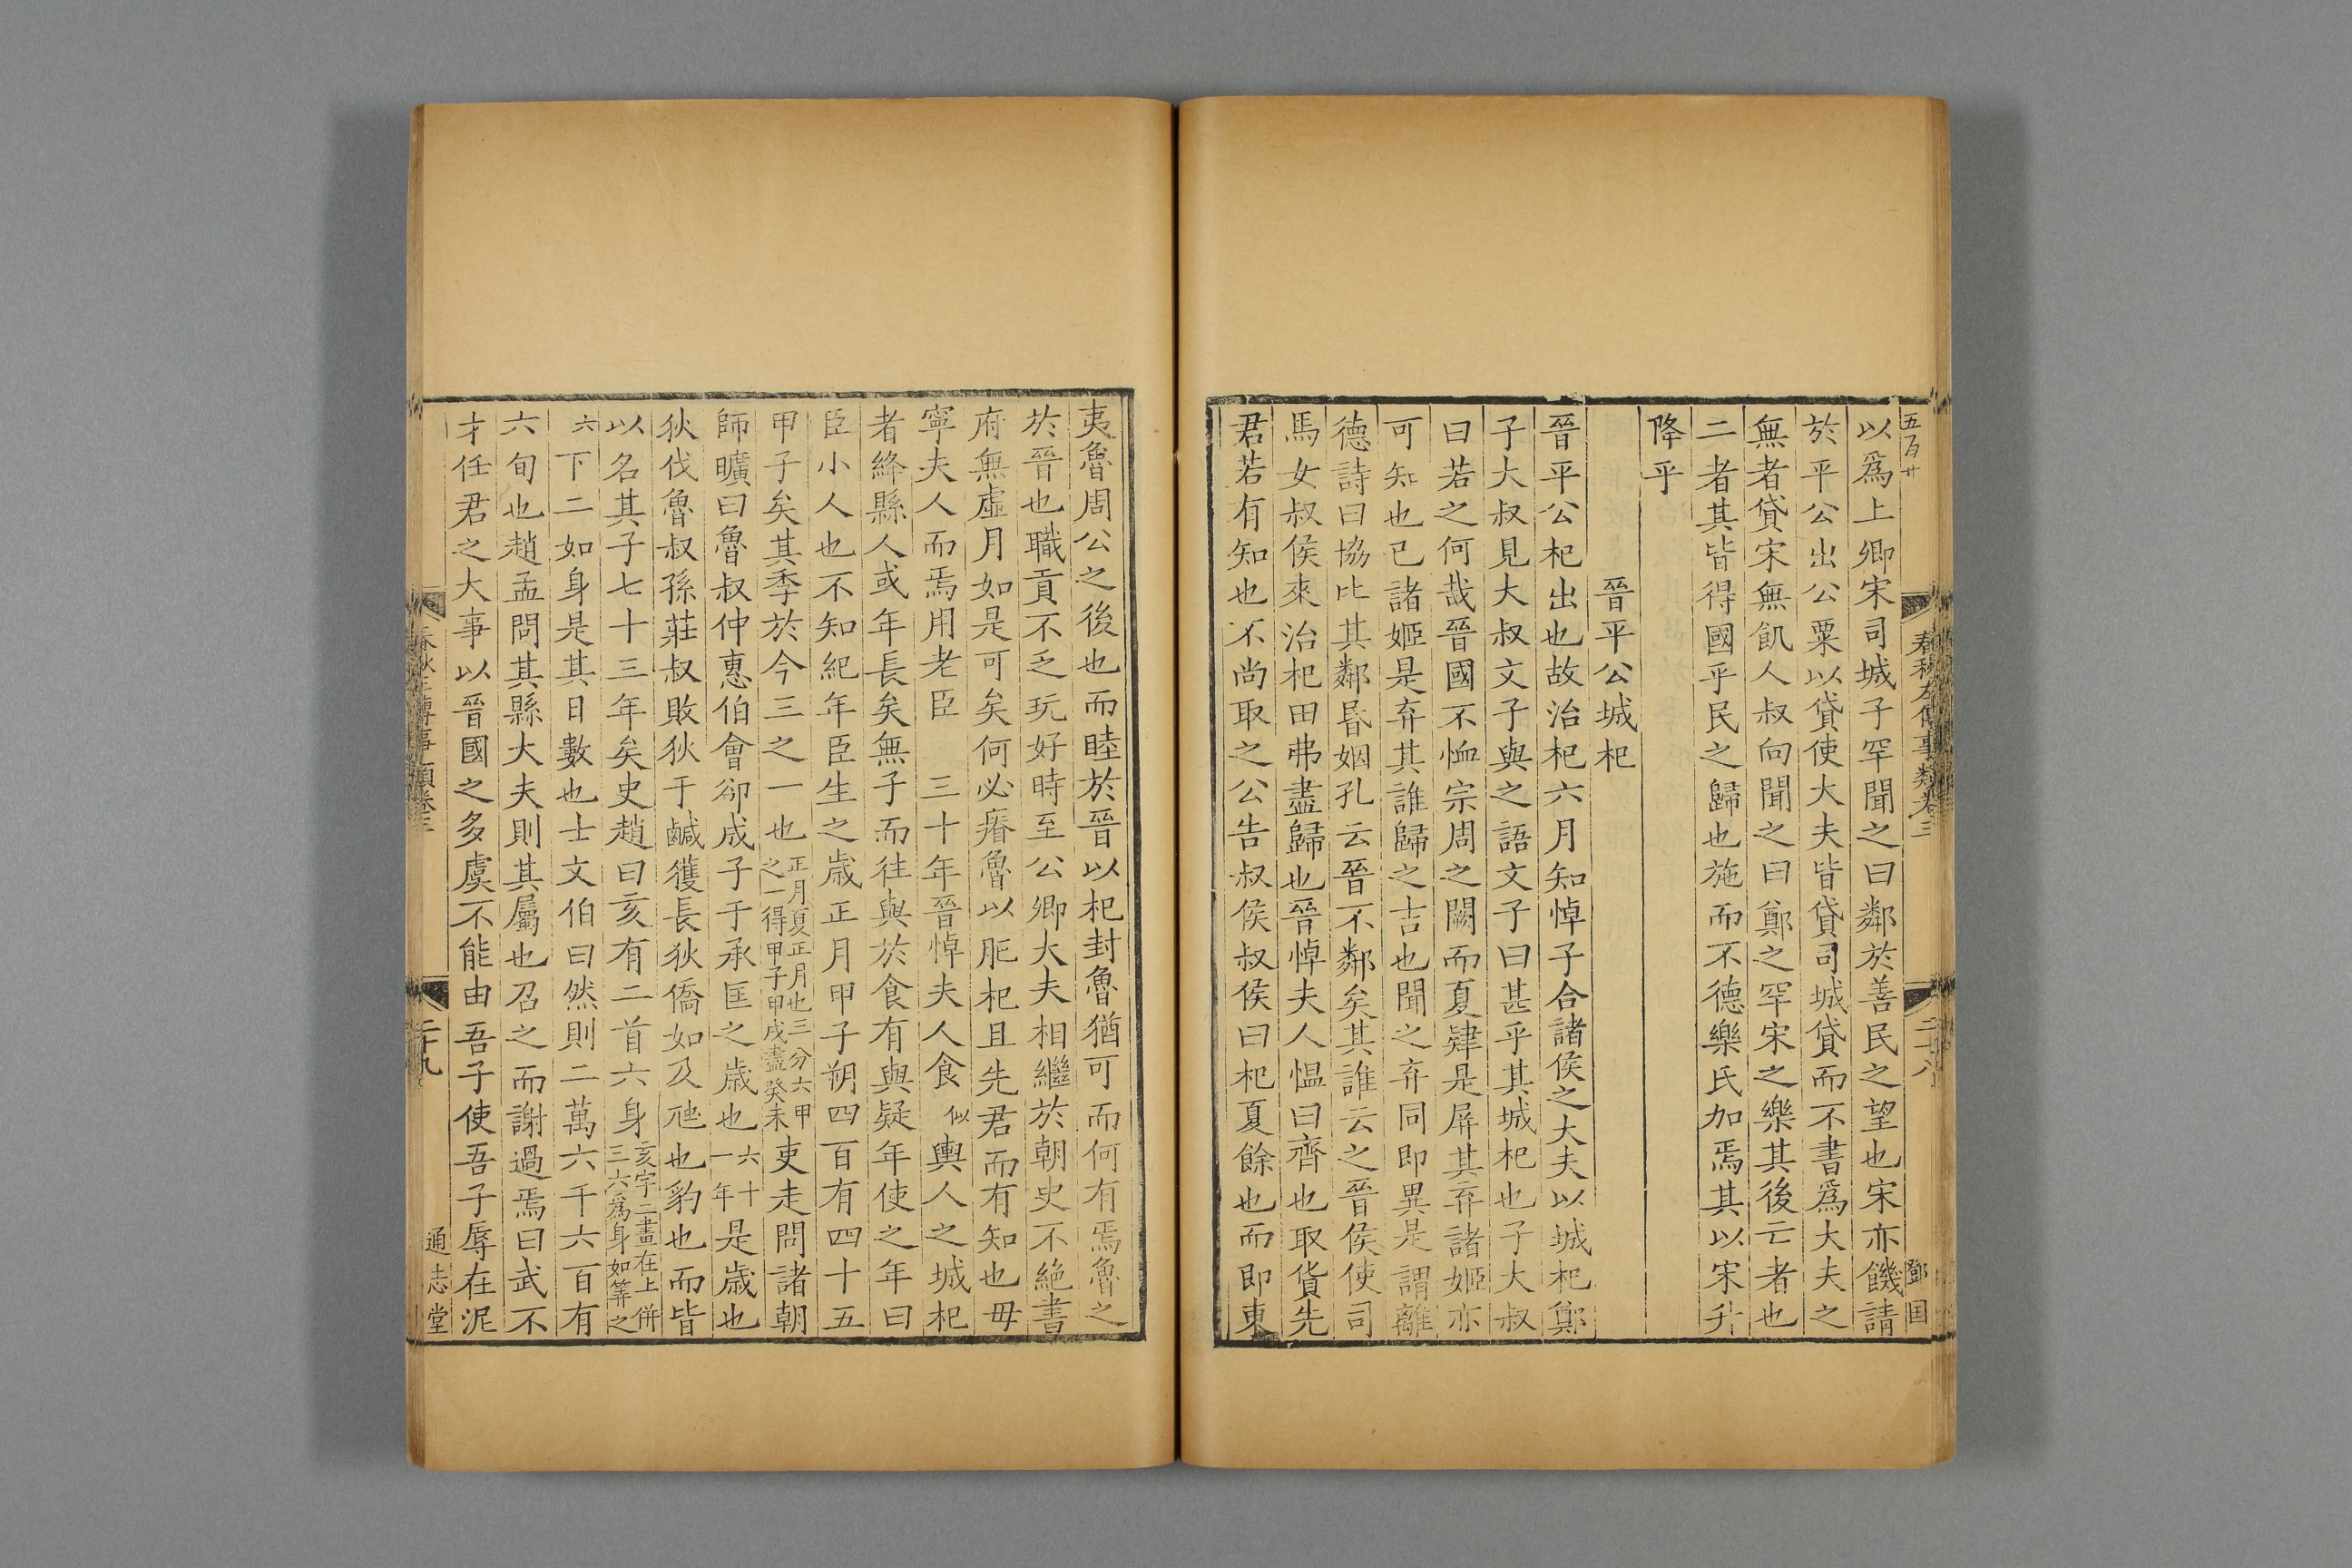 五百廿
春秋左傳事類卷三
二十八
鄧国
以爲上卿宋司城子罕聞之曰鄰於善民之望也宋亦饑請
於平公出公粟以貸使大夫皆貸司城貸而不書爲大夫之
無者貸宋無飢人叔向聞之曰鄭之罕宋之樂其後亡者也
二者其皆得國乎民之歸也施而不德樂氏加焉其以宋升
降乎
晉平公城杞
晉平公杞出也故治杞六月知悼子合諸侯之大夫以城杞鄭
子大叔見大叔文子與之語文子曰甚乎其城杞也子大叔
曰若之何哉晉國不恤宗周之闕而夏肄是屏其弃諸姬亦
可知也已諸姬是弃其誰歸之吉也聞之弃同即異是謂離
德詩曰協比其鄰昏姻孔云晉不鄰矣其誰云之晉侯使司
馬女叔侯來治杞田弗盡歸也晉悼夫人愠曰齊也取貨先
君若有知也不尚取之公告叔侯叔侯曰杞夏餘也而即東
夷魯周公之後也而睦於晉以杞封魯猶可而何有焉魯之
於晉也職貢不乏玩好時至公卿大夫相繼於朝史不絶書
府無虛月如是可矣何必瘠魯以肥杞且先君而有知也毋
寧夫人而焉用老臣 三十年晉悼夫人食似輿人之城杞
者絳縣人或年長矣無子而往與於食有與疑年使之年曰
臣小人也不知紀年臣生之歲正月甲子朔四百有四十五
甲子矣其季於今三之一也正月夏正月也三分六甲之一得甲子甲戌盡癸未吏走問諸朝
師曠曰魯叔仲惠伯會郤成子于承匡之歲也六十一年是歲也
狄伐魯叔孫莊叔敗狄于鹹獲長狄僑如及虺也豹也而皆
以名其子七十三年矣史趙曰亥有二首六身亥字二畫在上併三六爲身如筭之
六下二如身是其日數也士文伯曰然則二萬六千六百有
六旬也趙孟問其縣大夫則其屬也召之而謝過焉曰武不
才任君之大事以晉國之多虞不能由吾子使吾子辱在泥
春秋左傳事類卷三
二十九
通志堂